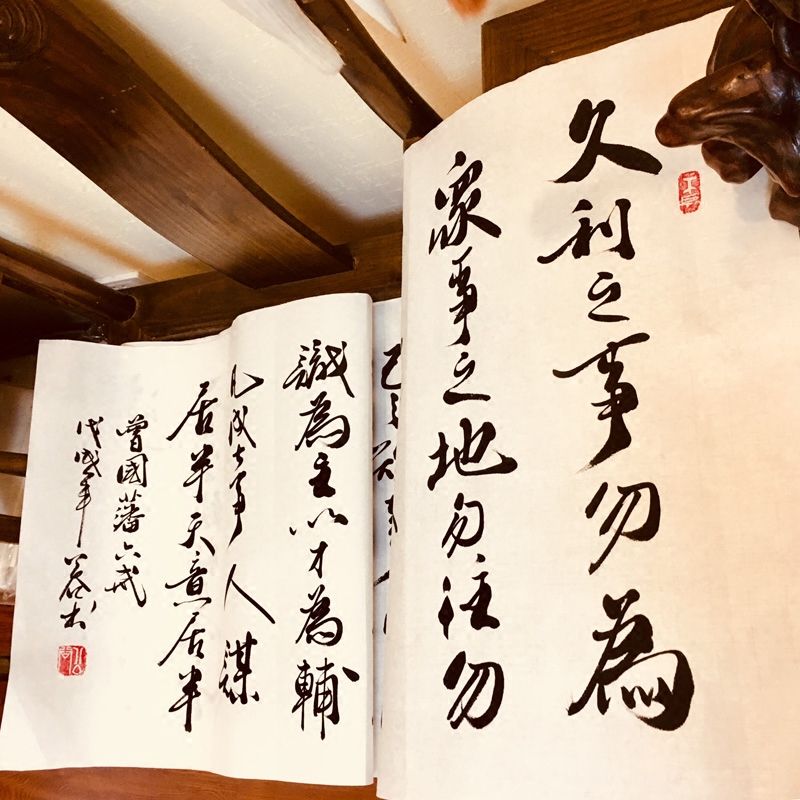 久利之事勿為
眾爭之地勿往勿
識為主以才為輔
凡成大事人謀
居半天意居半
曾國藩六戒
戊戌年